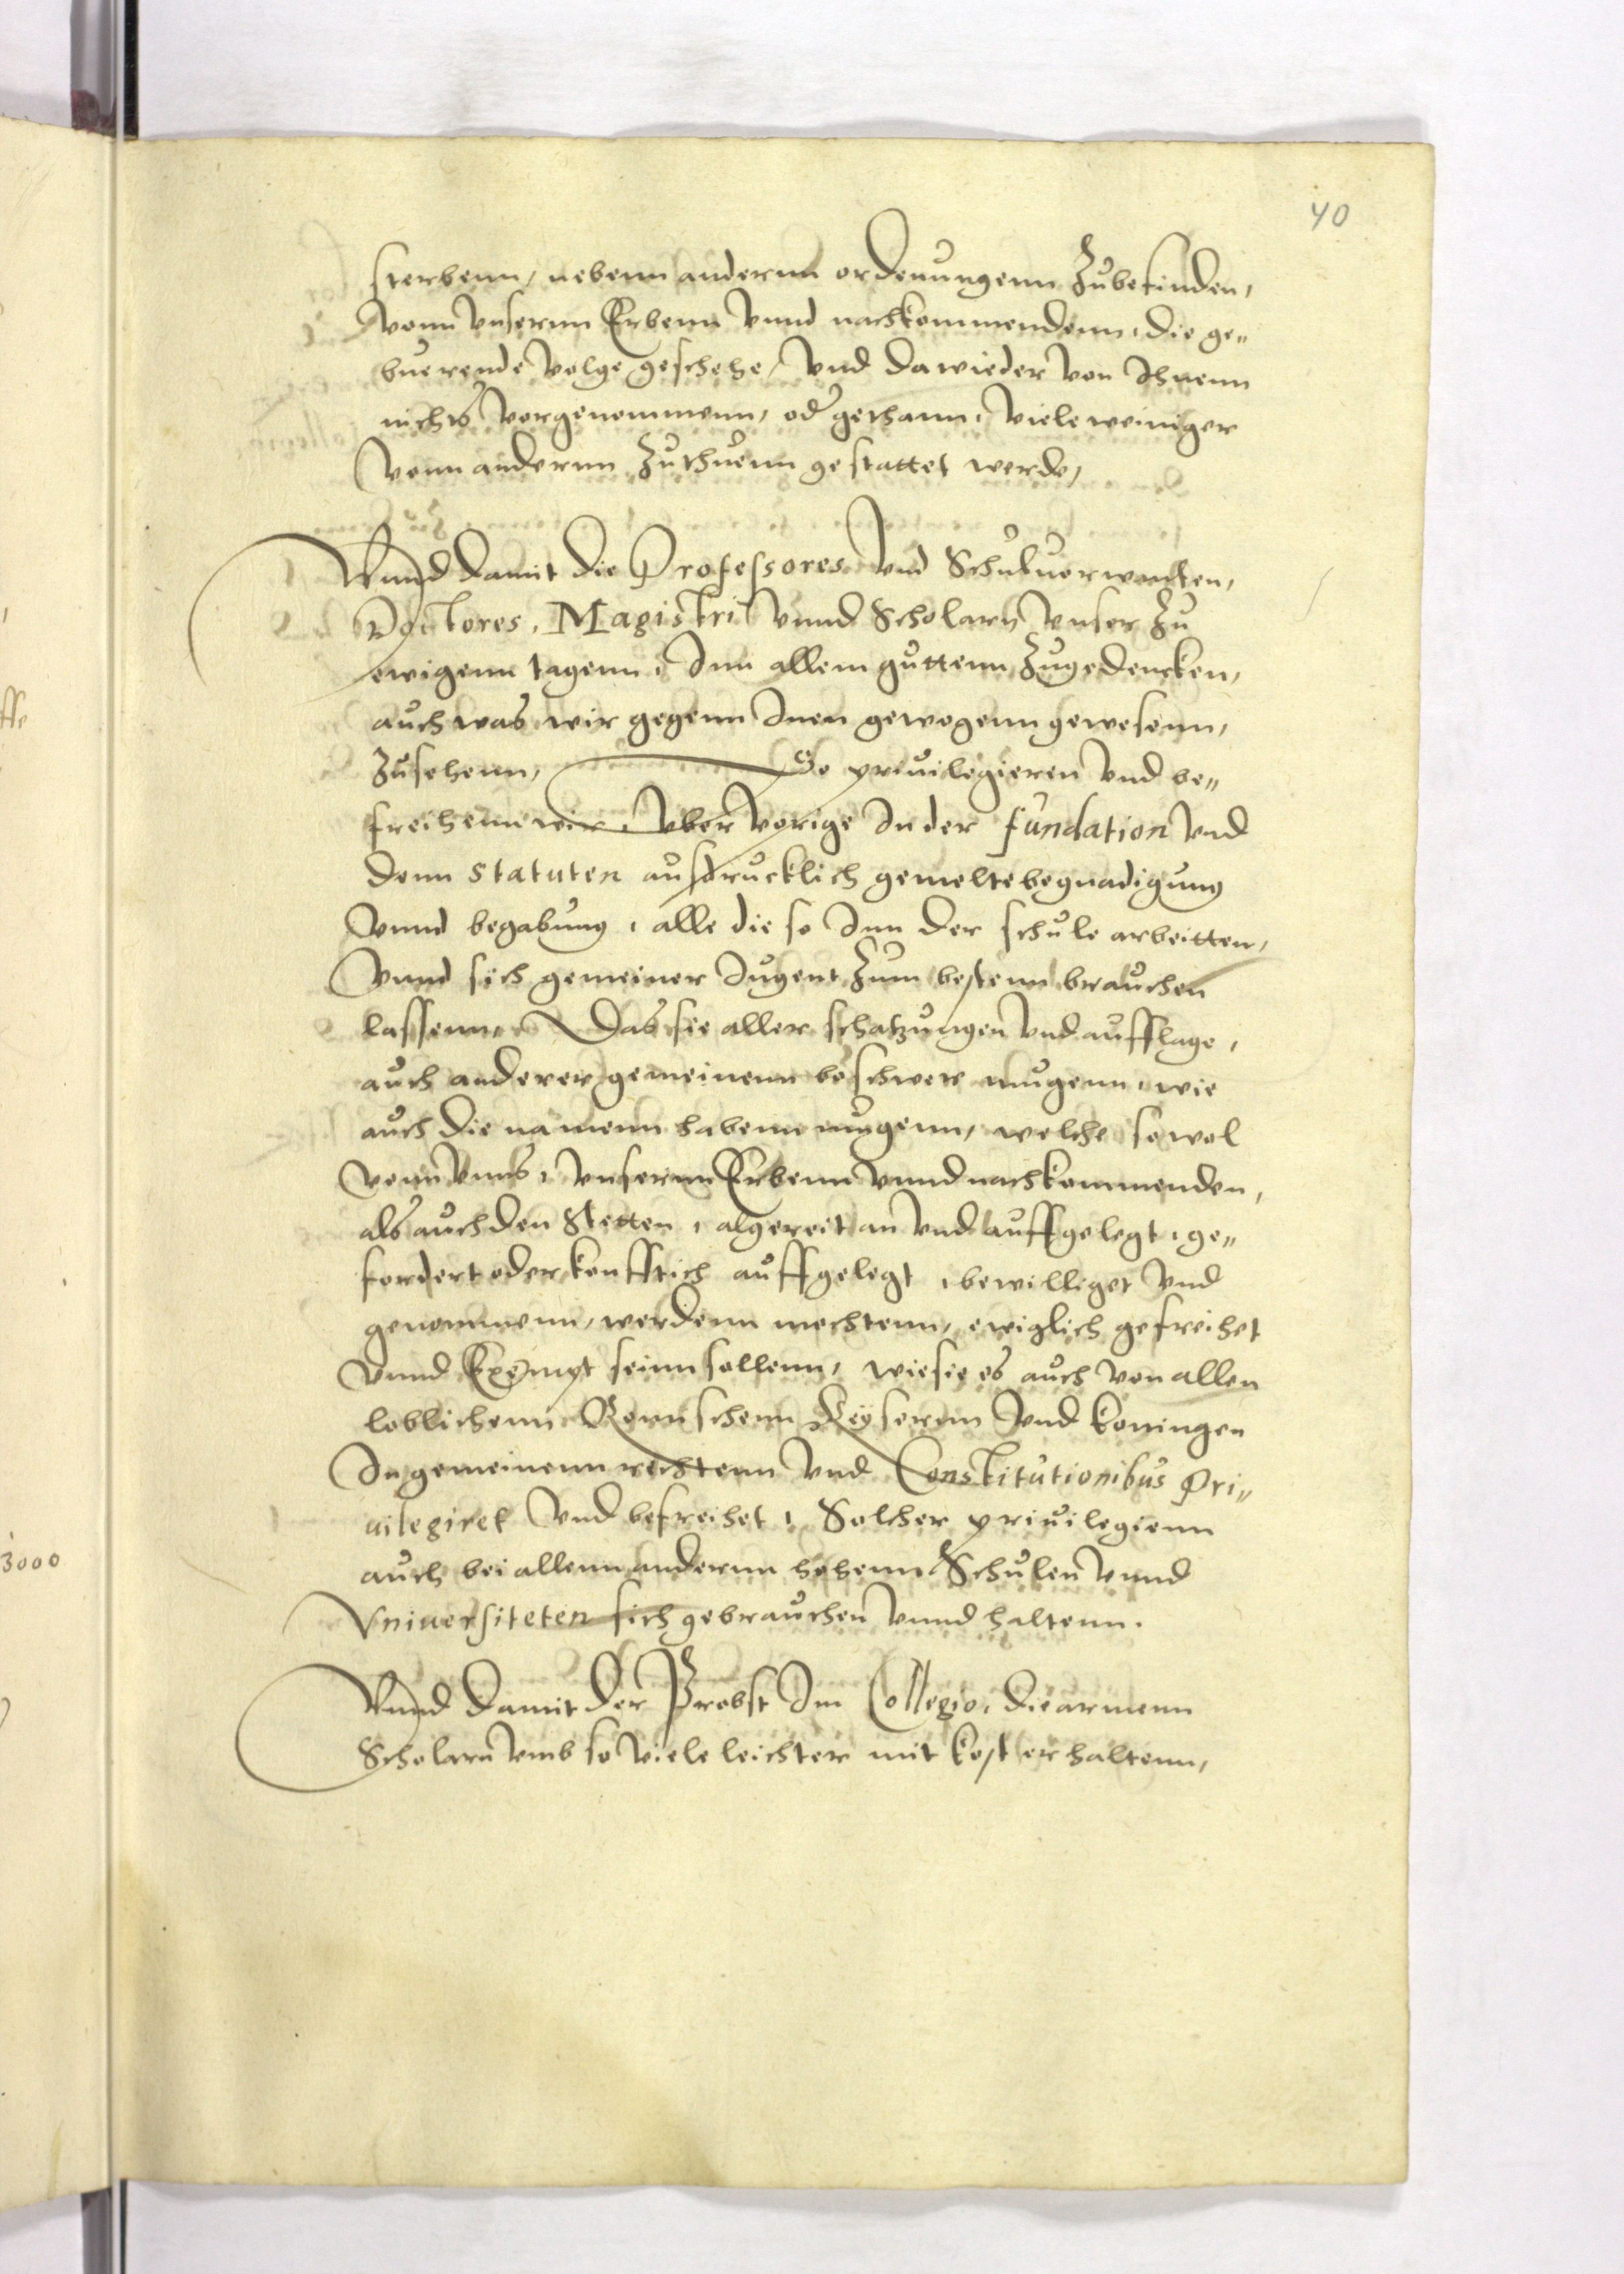 40
sterbenn, nebenn andernn ordenungenn Zubefinden,
vonn vnsernn Erbenn vnnd nachkommendenn, die ge„
buerende volge geschehe, vnd dawieder von Ihnenn
nichts vorgenommenn, od gethann, viele weiniger
vonn andernn Zuthuenn gestattet werde,
Vnnd damit die Professores vnd Schuluerwanten,
Doctores, Magistri vnnd Scholarn vnser Zu
ewigenn tagenn, Inn allem guttenn Zugedencken,
auch was wir gegenn Inen gewogenn gewesenn,
Zusehenn, So priuilegieren vnd be„
freihenn wir, vber vorige In der fundation vnd
denn Statuten ausdrucklich gemelte begnadigung
vnnd begabung, alle die so Inn der schule arbeitten,
vnnd sich gemeiner Jugent Zum bestenn brauchen
lassenn, Das sie aller schatzungen vnd aufflage,
auch anderer gemeinenn beschwer mugenn, wie
auch die namenn habenn mugenn, welche so wol
vonn vnns, vnsernn Erbenn vnnd nachkommenden,
als auch den Stetten, algereit an vnd auffgelegt, ge„
fordert oder konfftich auffgelegt, bewilliget vnd
genommenn, werdenn mochtenn, ewiglich gefreihet
vnnd Exempt seinn sollenn, wie sie es auch von allen
loblichenn Romschenn Keysernn vnd koningen
In gemeinenn rechtenn vnd Constitutionibus Pri„
uilegiret vnd befreihet, Solcher priuilegienn
auch bei allenn andernn hohenn Schulen vnnd
Vniuersiteten sich gebrauchen vnnd haltenn.
Vnnd damit der Probst Im Collegio, die armenn
Scholarn vmb so viele leichter mit kost erhaltenn,
3000